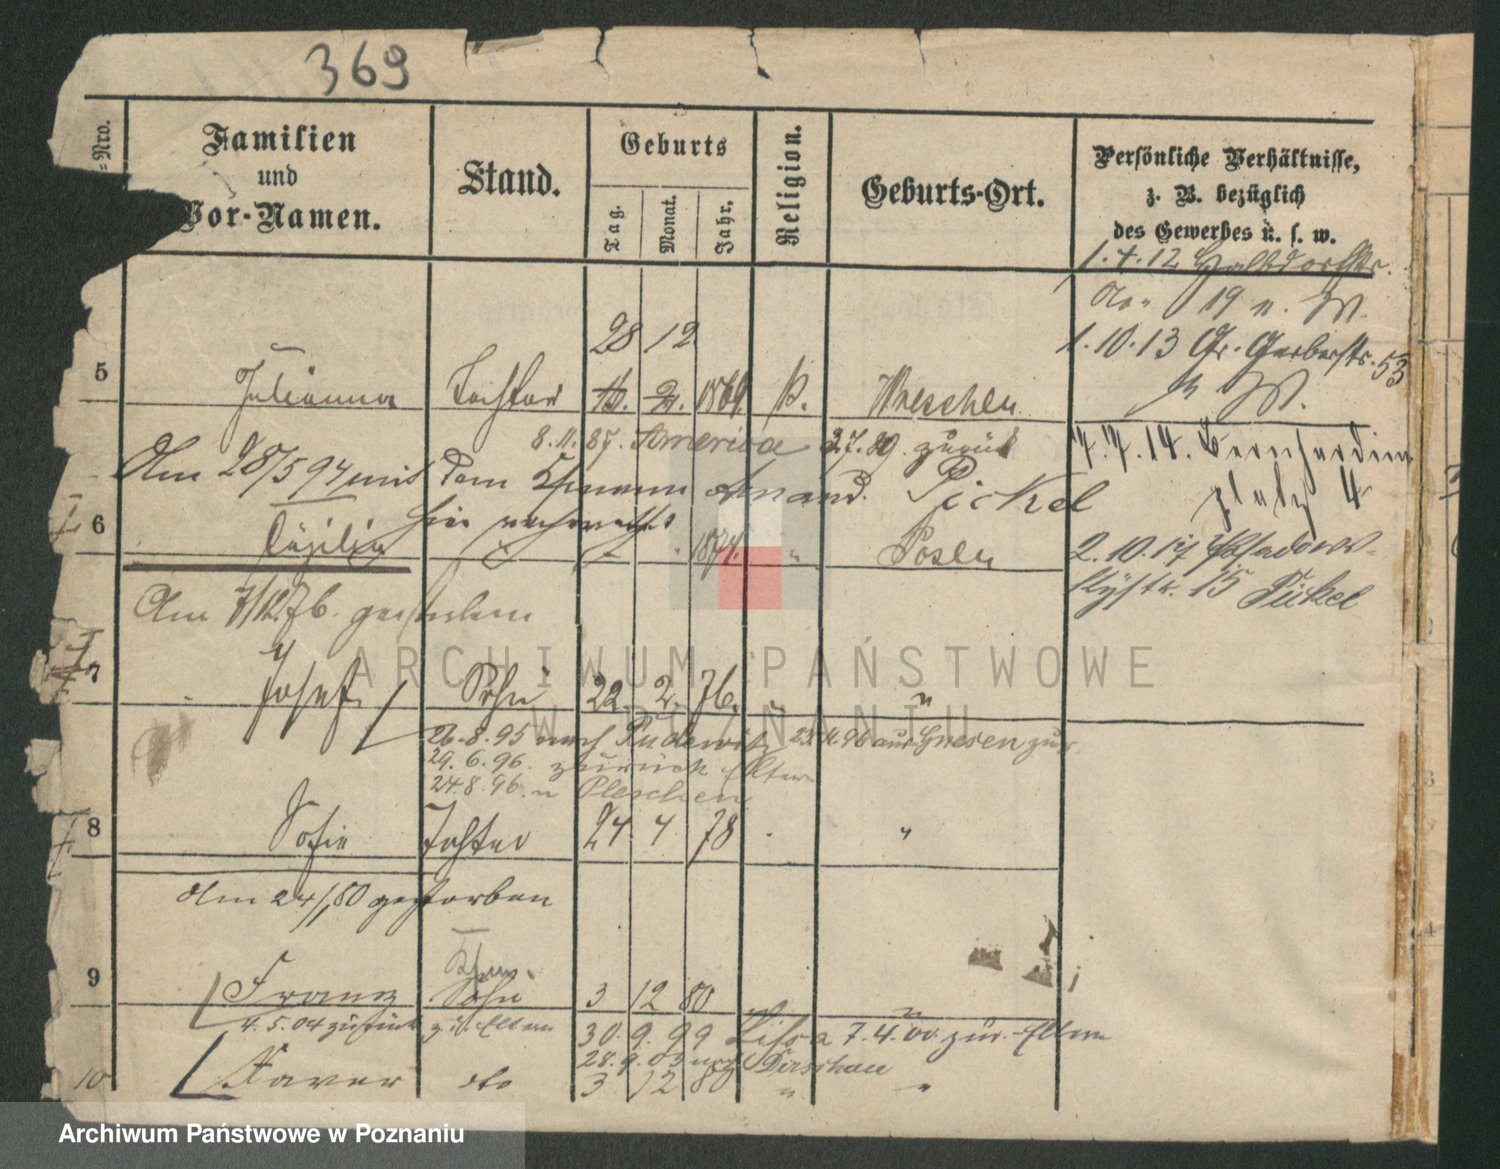 369
Nro.
Familien
und
Vor-Namen.
Stand.
Geburts
Tag.
Monat.
Jahr.
Religion.
Geburts-Ort.
Persönliche Verhältnisse,
z. B. bezüglich
des Gewerbes u. s. w.
1.4.12
do 19 n. W.
1.10.13 Gr. Gerberstr. 53
28 12
5 Julianna Tochter 1869 k. Wreschen
8.11.87. America 27.89. zurück
7.7.14. Bernhardiner
platz 4
Am 28/5 94 mit dem Ehemann Pickel
hier
6 Cäcilia " 1874. " Posen
2.10.17
str. 15 Pickel
Am 7/12.76. gestorben
7 Josef Sohn 22. 2. 76. "
26.8.95 nach Pudewitz 96 aus Gnesen zur.
29.6.96. zurück Eltern
24.8.96. n Pleschen
8 Sofie Tochter 24. 4 78 "
Am 24/ 80 gestorben
9 Franz Sohn 3 12 80 "
4.5.04 zurück zu Eltern 30.9.99 Lissa 7.4.00. zur. Eltern
28.9.03 nach Dirschau
10 Xaver do 3 12 80 " "
ARCHIWUM PAŃSTWOWE
W POZNANIU
Archiwum Państwowe w Poznaniu